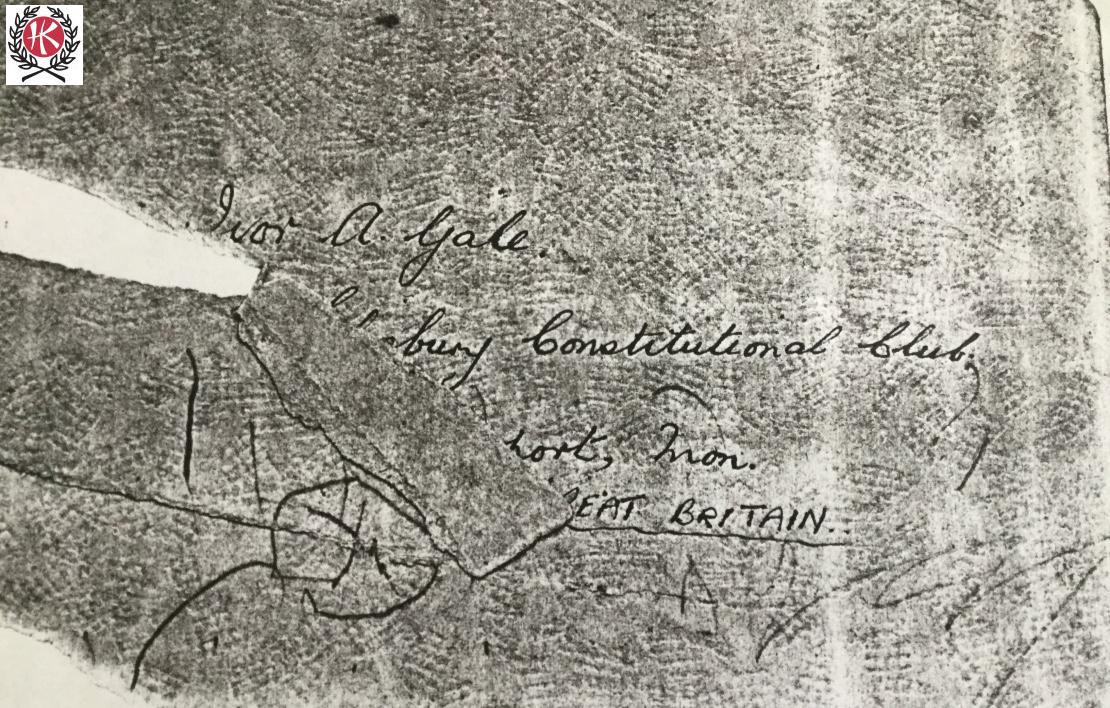 HK
Ivor A. Gale.
bury Constitutional Club,
port, Mon.
EAT BRITAIN.